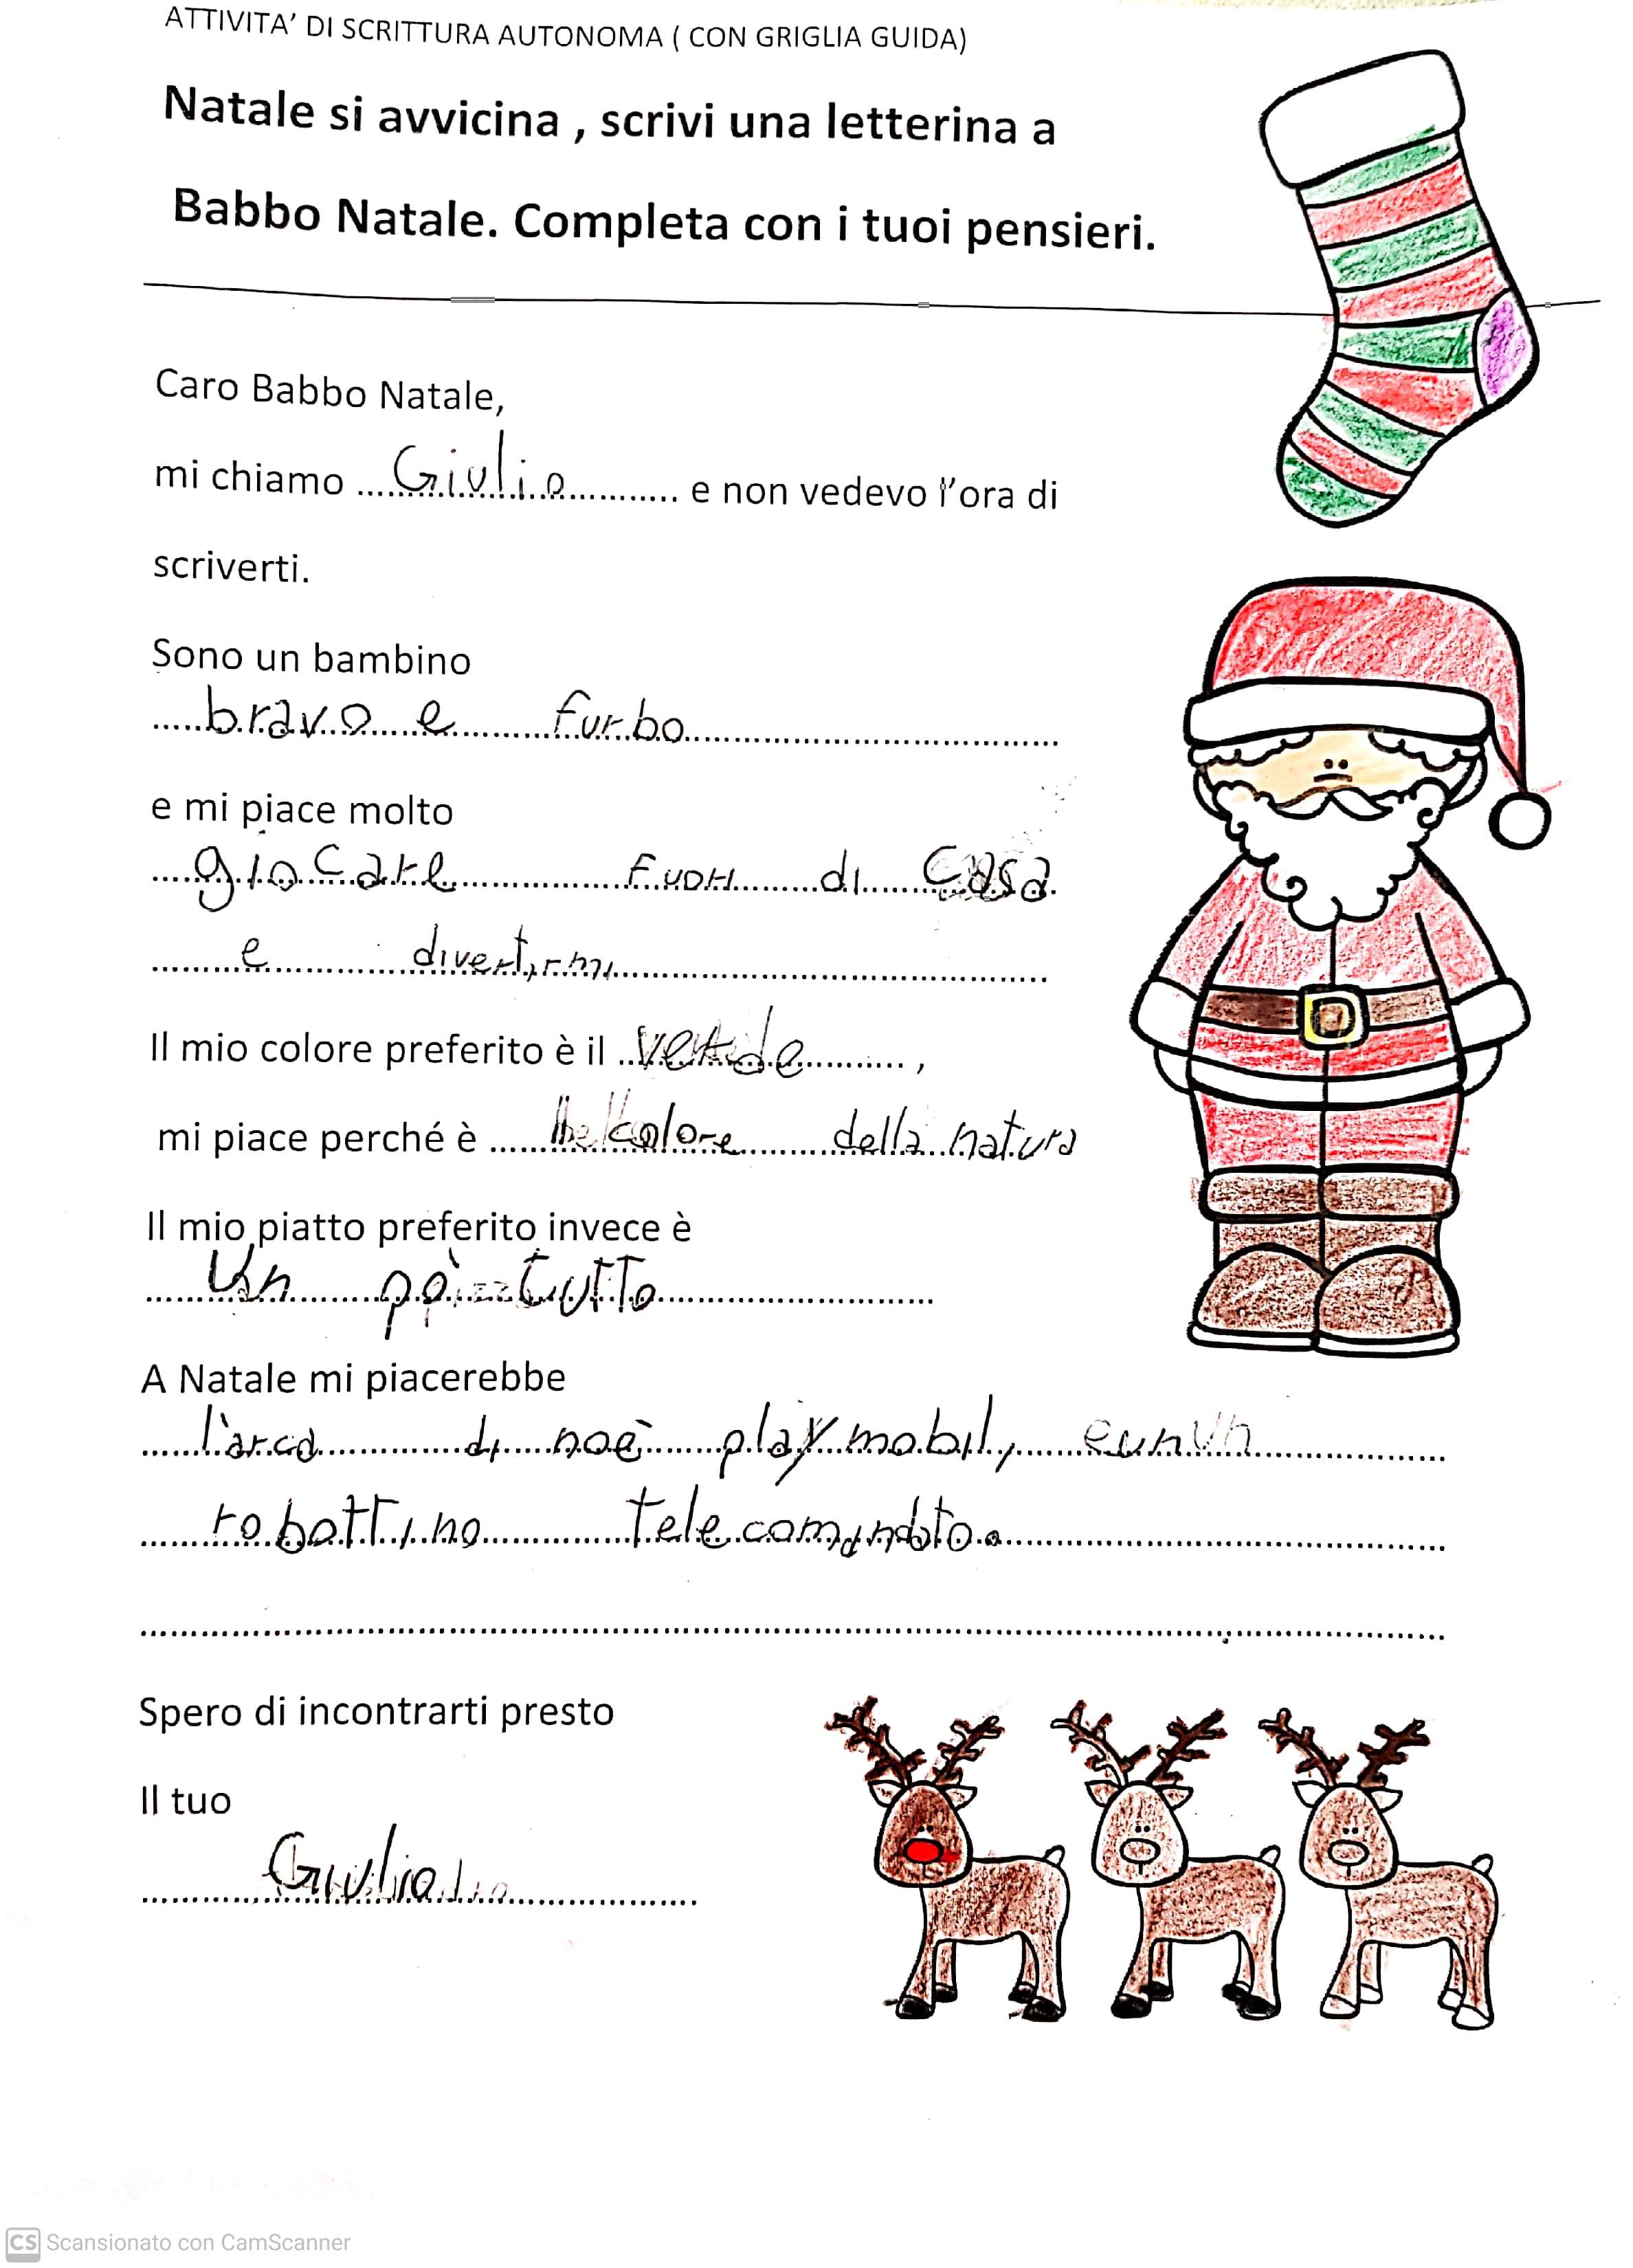 ATTIVITA’ DI SCRITTURA AUTONOMA ( CON GRIGLIA GUIDA)
Natale si avvicina , scrivi una letterina a
Babbo Natale. Completa con i tuoi pensieri.
Caro Babbo Natale,
mi chiamo Giulio e non vedevo l’ora di
scriverti.
Sono un bambino
bravo e furbo
e mi piace molto
giocare fuori di casa
e divertirmi
Il mio colore preferito è il verde ,
mi piace perché è colore della natura
Il mio piatto preferito invece è
Un pò tutto
A Natale mi piacerebbe
l'arca di noè playmobil, e un
robottino telecomandato.
Spero di incontrarti presto
Il tuo
Giulio
CS Scansionato con CamScanner